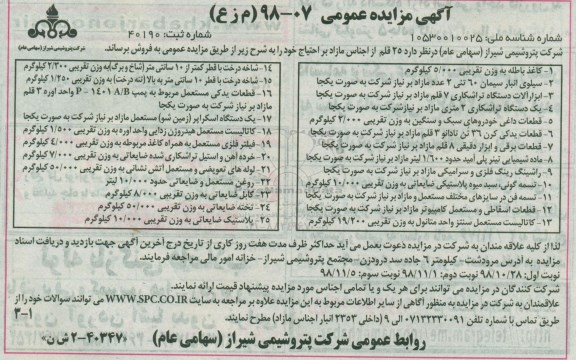 آگهی مزایده عمومی ۰۷-۹۸ (م ز ع)
شرکت پتروشیمی شیراز (سهامی عام)
شماره شناسه ملی: ۱۰۵۳۰۰۱۰۰۲۵
شماره ثبت: ۴۰۱۹۰
شرکت پتروشیمی شیراز (سهامی عام) درنظر دارد ۲۵ قلم از اجناس مازاد بر احتیاج خود را به شرح زیر از طریق مزایده عمومی به فروش برساند.
۱- کاغذ باطله به وزن تقریبی ۵/۰۰۰ کیلوگرم
۲- سیلوی انبار سیمان ۶۰ تنی ۲ عدد مازاد بر نیاز شرکت به صورت یکجا
۳- ابزارآلات دستگاه تراشکاری ۷ قلم مازاد بر نیاز شرکت به صورت یکجا
۴- یک دستگاه تراشکاری ۲ متری مازاد بر نیاز شرکت
۵- قطعات داغی خودروهای سبک و سنگین به وزن تقریبی ۲/۰۰۰ کیلوگرم
۶- قطعات یدکی کرن ۳۶ تن تادانو ۳ قلم مازاد بر نیاز شرکت به صورت یکجا
۷- قطعات برقی و ابزار دقیقی ۸ قلم مازاد بر نیاز شرکت به صورت یکجا
۸- ماده شیمیایی تینر پلی آمید حدود ۱/۶۰۰ لیتر مازاد بر نیاز شرکت به صورت یکجا
۹- راشینگ رینگ فلزی و سرامیکی مازاد بر نیاز شرکت به صورت یکجا
۱۰- تسمه گونی، سبد میوه پلاستیکی ضایعاتی به وزن تقریبی ۱۰/۰۰۰ کیلوگرم
۱۱- تسمه فن در سایزهای مختلف مستعمل و مازاد بر نیاز شرکت به صورت یکجا
۱۲- قطعات اسقاطی و مستعمل کامپیوتر مازاد بر نیاز شرکت به صورت یکجا
۱۳- کاتالیست مستعمل سنتز واحد متانول به وزن تقریبی ۱۹/۲۰۰ کیلوگرم
۱۴- شاخه درخت با قطر کمتر از ۱۰ سانتی متر (شاخ و برگ) به وزن تقریبی ۲/۳۰۰ کیلوگرم
۱۵- شاخه درخت با قطر ۱۰ سانتی متر به بالا (تنه درخت) به وزن تقریبی ۱/۲۵۰ کیلوگرم
۱۶- قطعات یدکی مستعمل مربوط به پمپ P - ۱۴۰۱ A/B واحد اوره ۳ قلم
مازاد بر نیاز شرکت به صورت یکجا
۱۷- یک دستگاه اسکرابر (زمین شو) مستعمل مازاد بر نیاز شرکت
۱۸- کاتالیست مستعمل هیدروژن زدایی واحد اوره به وزن تقریبی ۱/۵۰۰ کیلوگرم
۱۹- فیلتر فلزی مستعمل به همراه کاغذ مربوطه به وزن تقریبی ۴/۰۰۰ کیلوگرم
۲۰- خرده آهن و استیل تراشکاری شده ضایعاتی به وزن تقریبی ۷/۰۰۰ کیلوگرم
۲۱- لوله های تعویضی و مستعمل آتش نشانی به وزن تقریبی ۵/۰۰۰ کیلوگرم
۲۲- روغن مستعمل و ضایعاتی حدود ۱۰/۰۰۰ لیتر
۲۳- کابل ضایعاتی به وزن تقریبی ۸/۰۰۰ کیلوگرم
۲۴- تخته ضایعاتی به وزن تقریبی ۵۰/۰۰۰ کیلوگرم
۲۵- پلاستیک ضایعاتی به وزن تقریبی ۱۰/۰۰۰ کیلوگرم
لذا از کلیه علاقه مندان به شرکت در مزایده دعوت بعمل می آید حداکثر ظرف مدت هفت روز کاری از تاریخ درج آخرین آگهی جهت بازدید و دریافت اسناد
مزایده به آدرس مرودشت- کیلومتر ۶ جاده سد درودزن- مجتمع پتروشیمی شیراز- خزانه امور مالی مراجعه فرمایند.
نوبت اول: ۹۸/۱۰/۲۸ نوبت دوم: ۹۸/۱۱/۱ نوبت سوم: ۹۸/۱۱/۵
شرکت کنندگان در مزایده می توانند برای هر یک و یا تمامی اجناس مورد مزایده پیشنهاد قیمت ارائه نمایند.
علاقمندان به شرکت در مزایده به منظور آگاهی از سایر اطلاعات مربوط به این مزایده علاوه بر مراجعه به سایت WWW.SPC.CO.IR می توانند سوالات خود را از
طریق تماس با شماره تلفن ۰۷۱۳۲۳۳۰۰۹۱ الی ۹ (داخلی ۲۳۵۳ انبار اجناس مازاد) مطرح نمایند.
۳-۱
روابط عمومی شرکت پتروشیمی شیراز (سهامی عام)
۲-۴۰۳۴۷ ش ن